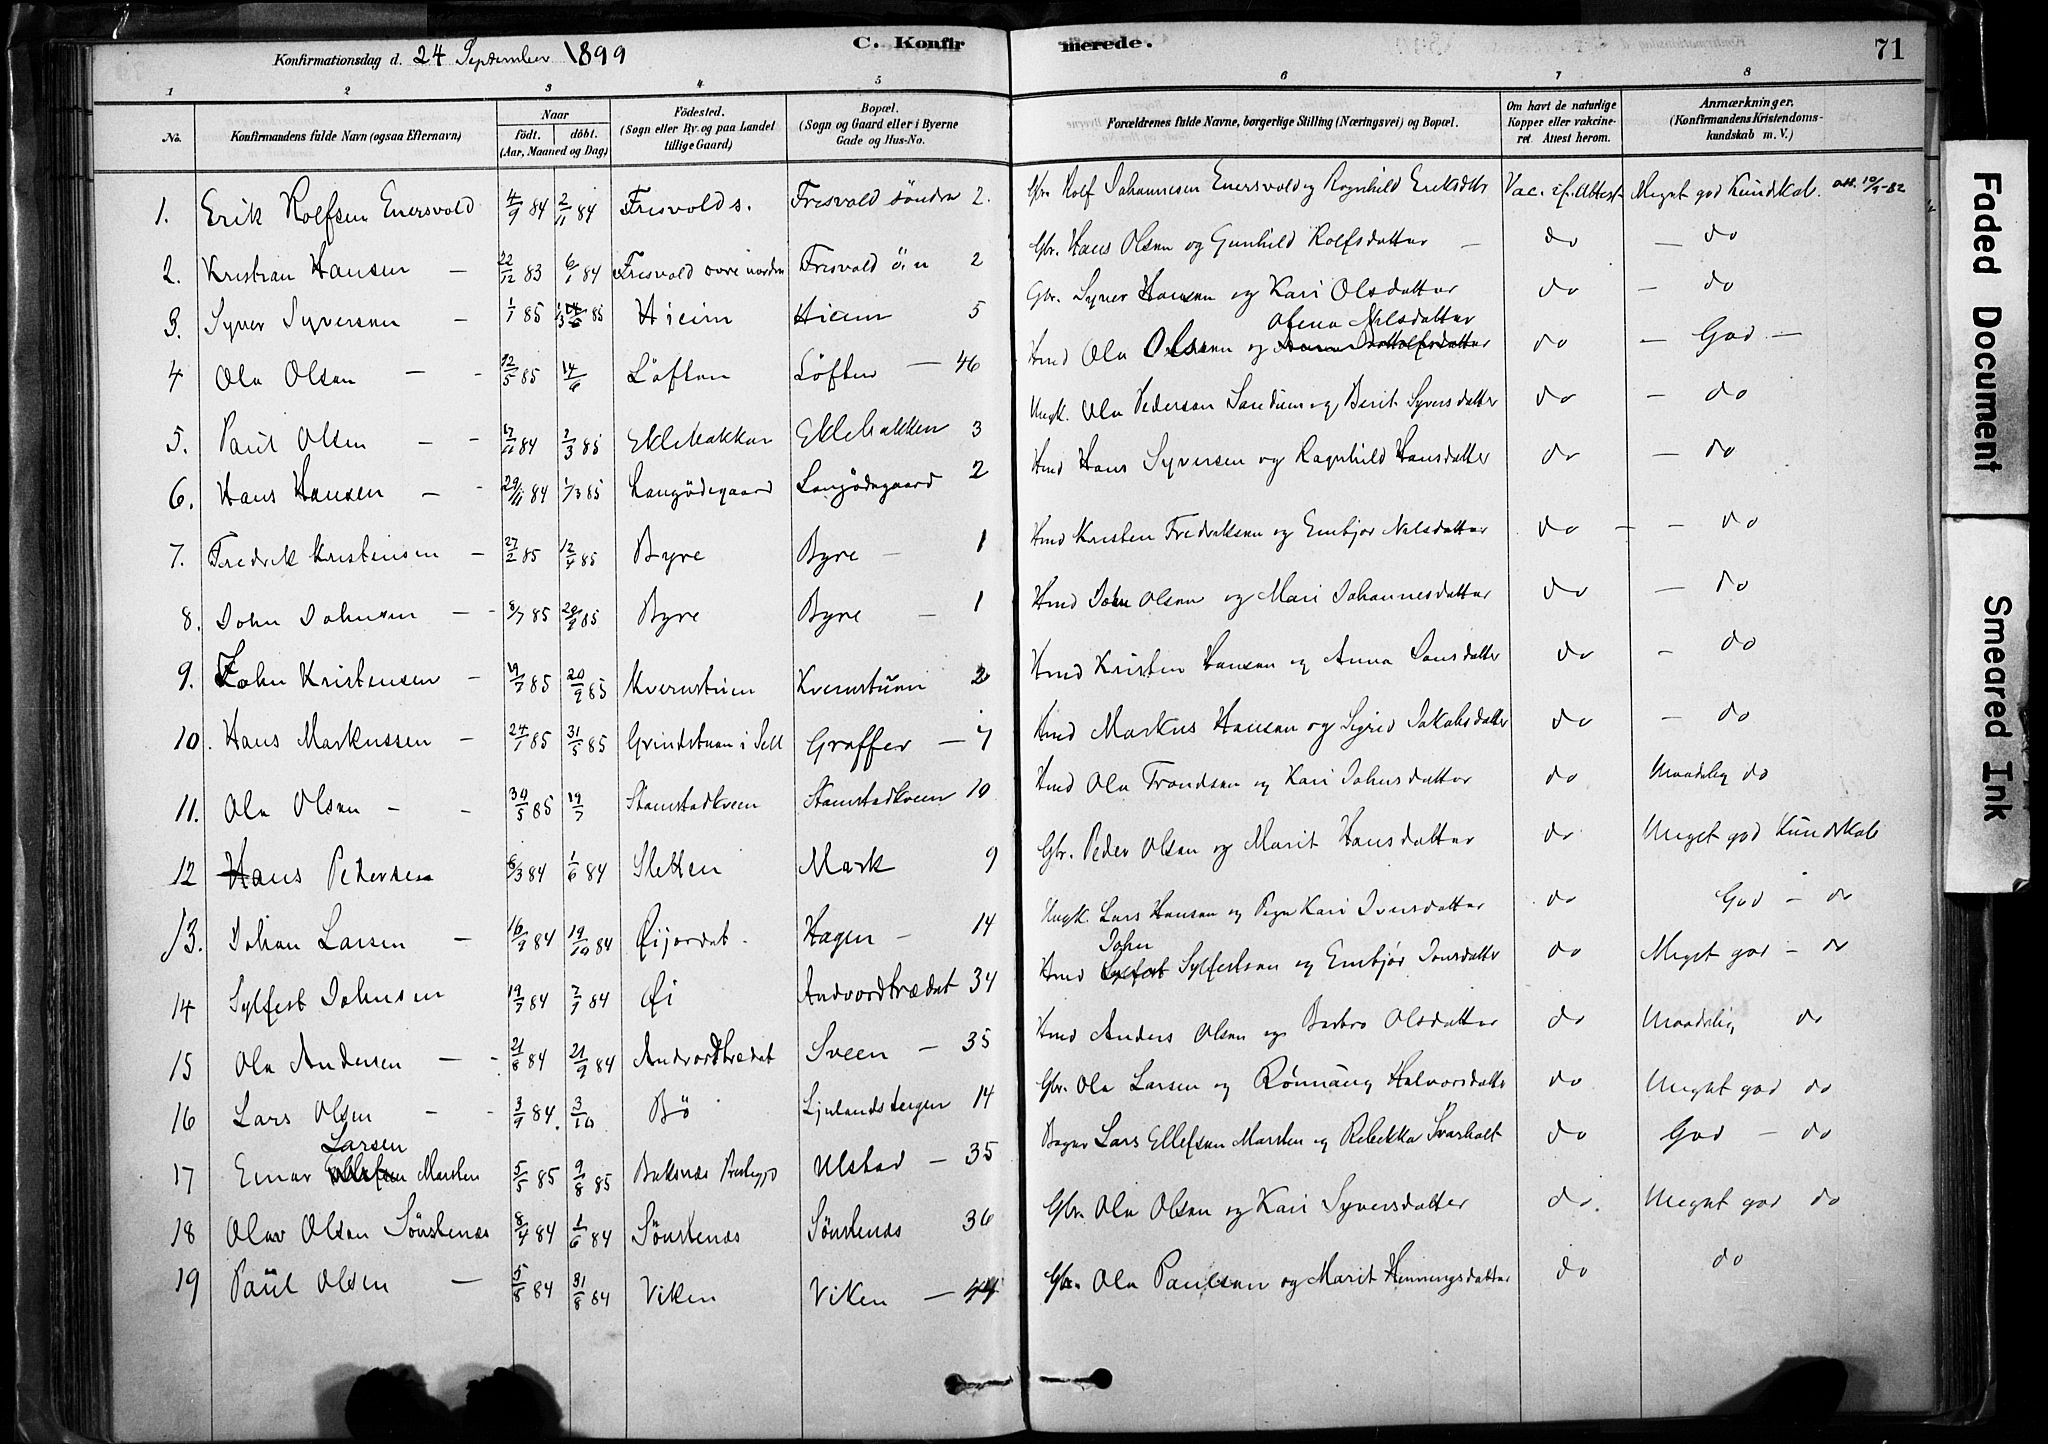 Konfirmationsdag d. 24 September 1899
C. Konfirmerede.
71
1 2 3 4 5 6 7 8
No.
Konfirmandens fulde Navn (ogsaa Efternavn)
Naar
födt. döbt.
(Aar, Maaned og Dag)
Födested.
(Sogn eller By og paa Landet
tillige Gaard)
Bopæl.
(Sogn og Gaard eller i Byerne
Gade og Hus-No.
Forældrenes fulde Navne, borgerlige Stilling (Næringsvei) og Bopæl.
Om havt de naturlige
Kopper eller vakcine-
ret. Attest herom.
Anmærkninger.
(Konfirmandens Kristendoms-
kundskab m. V.)
1. Erik Rolfsen Enersvold 4/9 84 2/11 84 Frisvold s. Frisvold söndre 2. Gbr. Rolf Johannesen Enersvold og Ragnhild Eriksdtr Vac. if. Attest Meget god Kundskab. att. 10/9-82
2. Kristian Hansen — 22/12 83 6/1 84 Frisvold övre nordre Frisvold ö. n 2 Gbr. Hans Olsen og Gunhild Rolfsdatter — do — do
3. Syver Syversen — 1/1 85 85 Hieim Hieim 5 Gbr. Syver Hansen og Kari Olsdatter do — do
4 Ola Olsen — - 12/5 85 14/6 Löften Löften — 46 Hmd Ola Olsen og Nilsdatter do — God —
5. Paul Olsen — - 84 3 85 Eklebakken Eklebakken 3 Ungk. Ola Pedersen og Berit Syversdatter do — do
6. Hans Hansen — - 29/11 84 1/3 85 Langödegaard Langödegaard 2 Hmd Hans Syversen og Ragnhild Hansdatter do — do
7. Fredrik Kristensen — 27/2 85 12/4 85 Byre Byre — 1 Hmd Kristen Fredriksen og Embjør Nilsdatter do — — do
8. John Johnsen — - 8/7 85 20/9 85 Byre Byre — 1 Hmd John Olsen og Mari Johannesdatter do — do
9. John Kristensen — 19/7 85 20/9 85 Kvernstuen Kvernstuen 2 Hmd Kristen Hansen og Anna Jonsdatter do — do
10. Hans Markussen — 24/1 85 31/5 85 Grindstuen i Sell Graffer — 7 Hmd Markus Hansen og Sigrid Jakobsdatter do — do
11. Ola Olsen — - 30/5 85 19/7 Stamstadkveen Stamstadkveen 10 Hmd Ola Trondsen og Kari Johnsdatter do Maadelig do
12 Hans Pedersen 6/3 84 1/6 84 Sletten Mork 9 Gbr. Peder Olsen og Marit Hansdatter do Meget god Kundskab
13. Johan Larsen — 16/9 84 19/10 84 Öijordet. Hagen — 14 Ungk. Lars Hansen og Pige Kari Iversdatter do God — do
14 Sylfest Johnsen 19/7 84 7 84 Öi Andvordtrædet 34 Hmd Sylfest John Sylfestsen og Embjör Jonsdatter do Meget god — do
15 Ola Andersen — - 21/8 84 21/9 84 Andvordtrædet Sveen — 35 Hmd Anders Olsen og Barbro Olsdatter do Maadelig do
16 Lars Olsen — - 3/9 84. 3/10 Bö 14 Gbr. Ola Larsen og Rönnaug Halvorsdatter do Meget god do
Larsen
17 Einar Ellefsen Marsten 5/5 85 9/8 85 Buksnæs Prestegjd Ulstad — 35 Bager Lars Ellefsen Marsten og Rebekka Svarholt do God — do
18 Olav Olsen Sönstenæs 8/4 84 1/6 84 Sönstenæs Sönstenæs 36 Gbr. Ola Olsen og Kari Syversdatter do. Meget god do
19 Paul Olsen — 5/8 84 31/8 84 Viken Viken — 44 Gbr. Ola Paulsen og Marit Henningsdatter do do
Faded Document
Smeared Ink